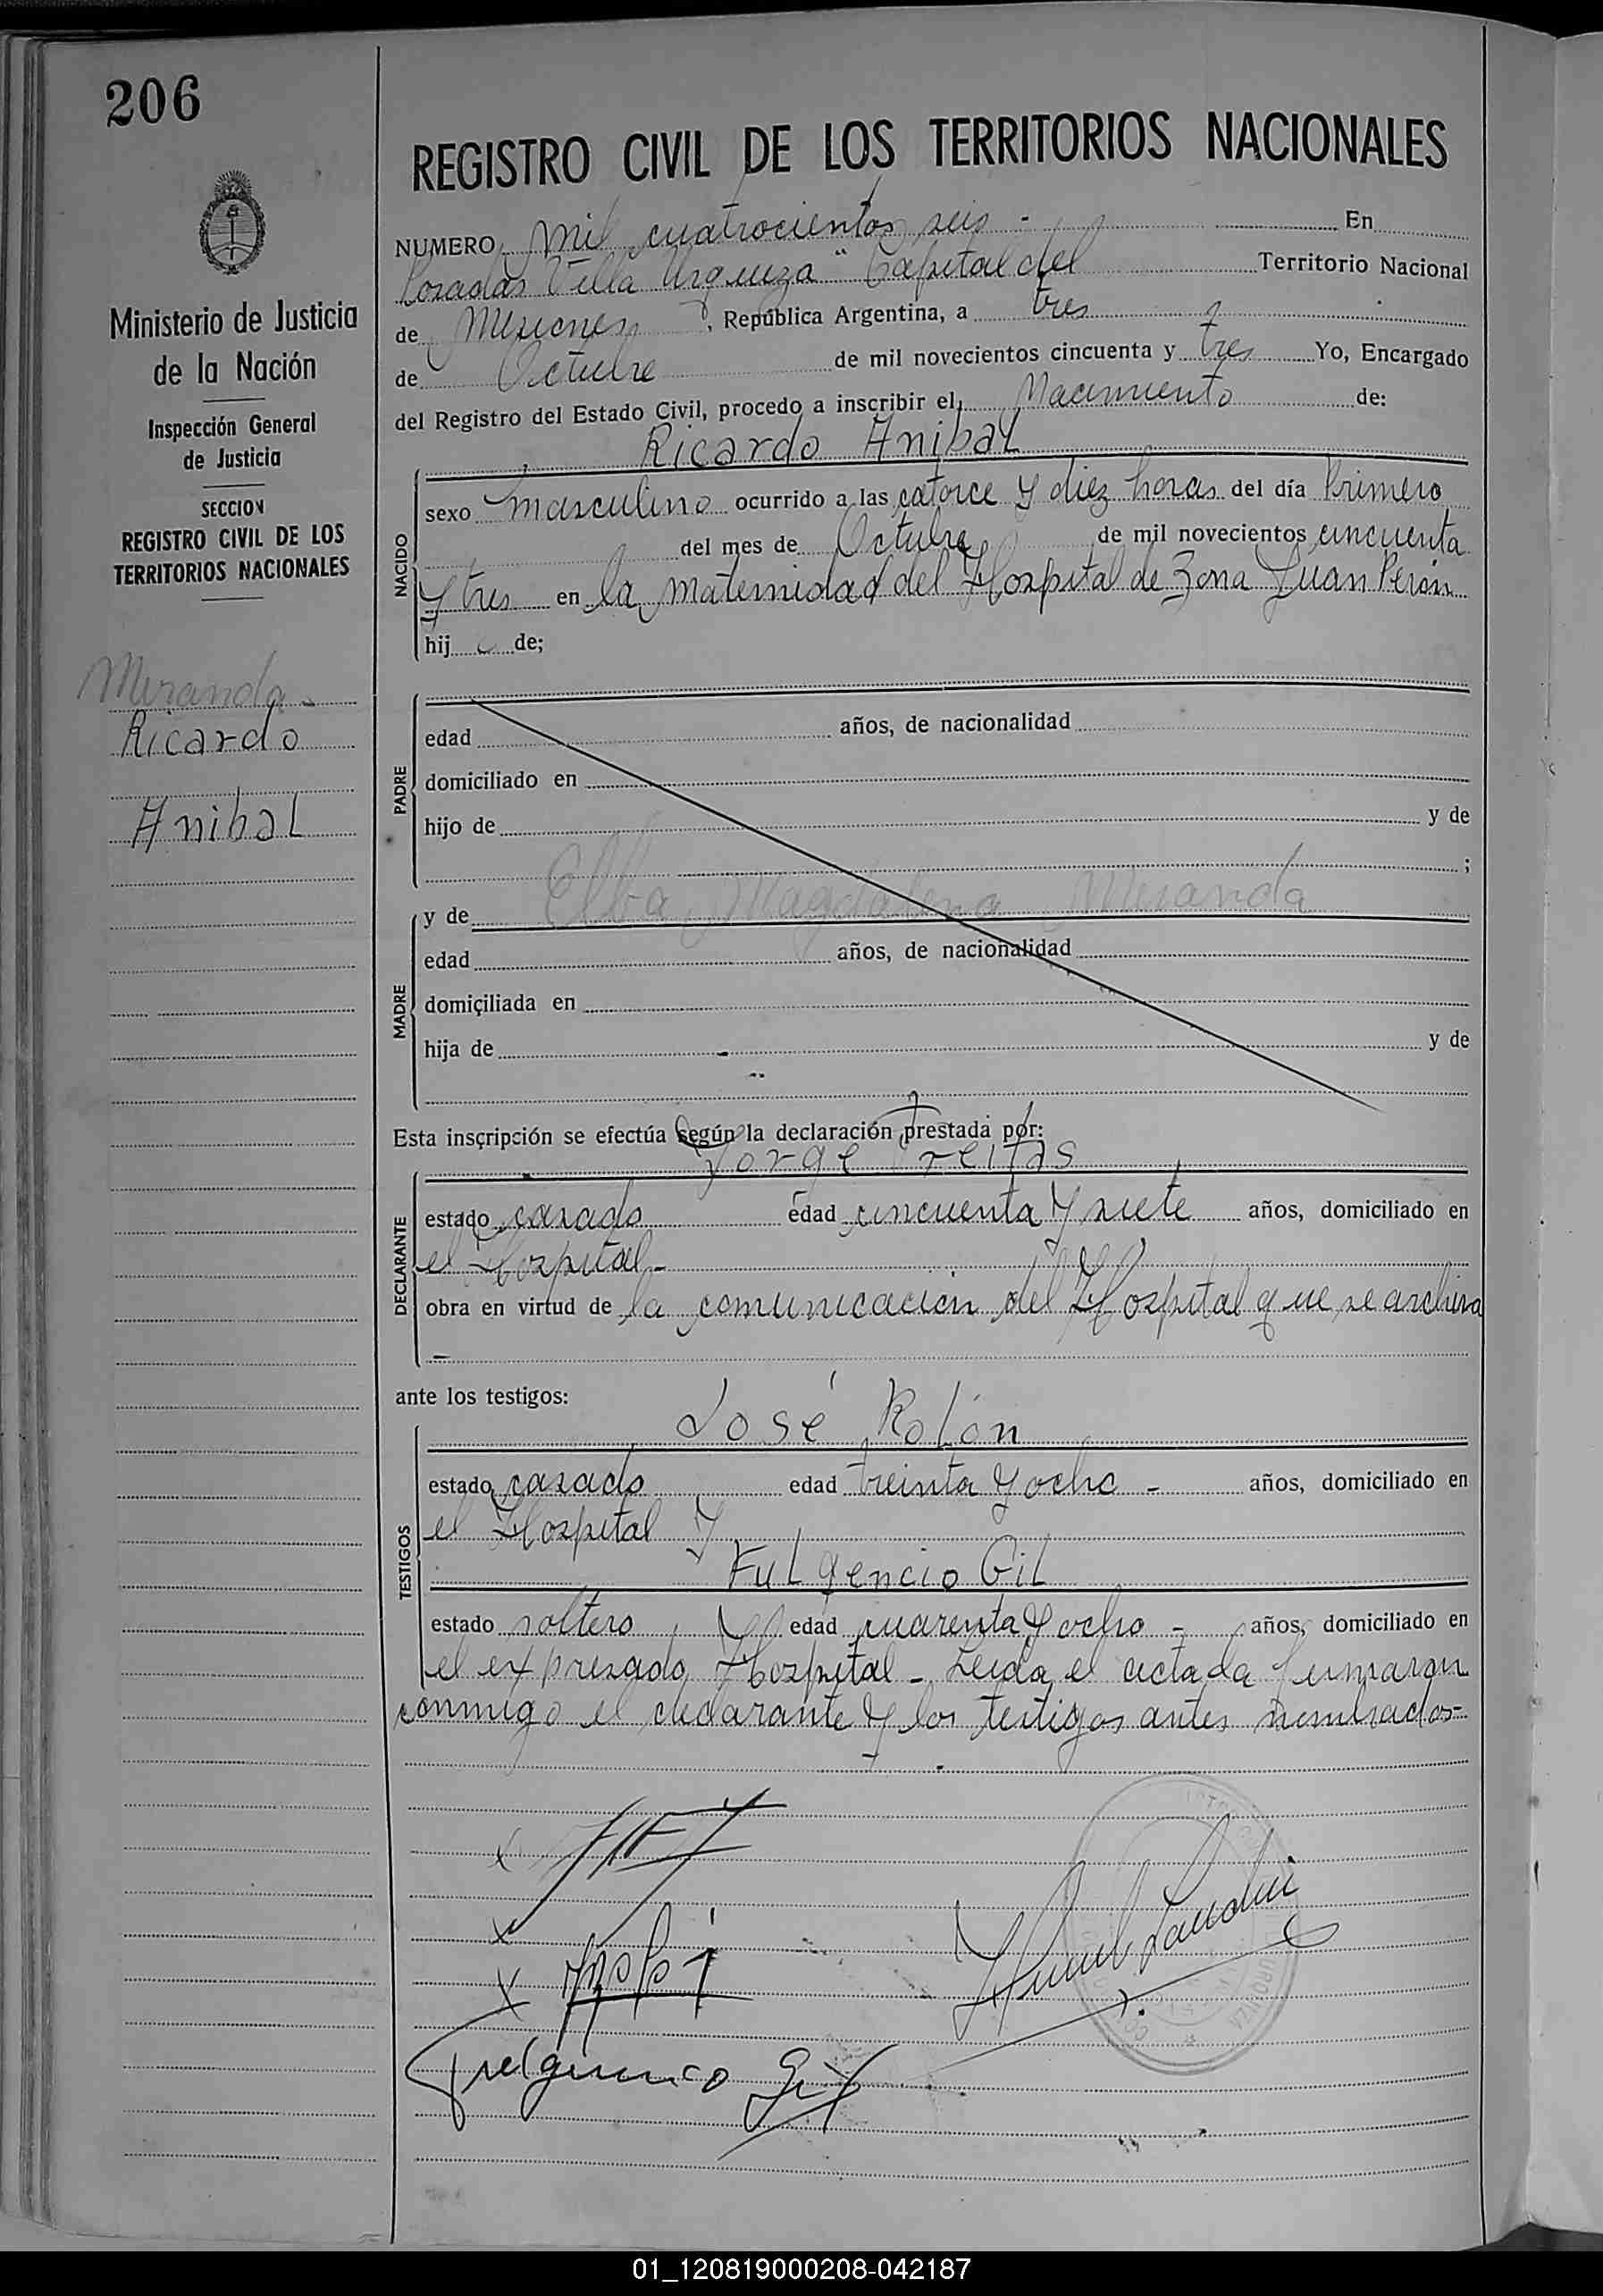 206
REGISTRO CIVIL DE LOS TERRITORIOS NACIONALES
Ministerio de Justicia
de la Nación
Inspección General
de Justicia
SECCION
REGISTRO CIVIL DE LOS
TERRITORIOS NACIONALES
Miranda
Ricardo
Anibal
NUMERO mil cuatrocientos seis - En
Posadas Villa Urquiza" Capital del Territorio Nacional
de Misiones, República Argentina, a tres
de Octubre de mil novecientos cincuenta y tres Yo, Encargado
del Registro del Estado Civil, procedo a inscribir el Nacimiento de:
Ricardo Anibal
NACIDO
sexo masculino ocurrido a las catorce y diez horas del día Primero
del mes de Octubre de mil novecientos cincuenta
y tres en la maternidad del Hospital de Zona Juan Perón
hij o de;
PADRE
edad años, de nacionalidad
domiciliado en
hijo de y de
;
MADRE
y de Elba Magdalena Miranda
edad años, de nacionalidad
domiciliada en
hija de y de
Esta inscripción se efectúa según la declaración prestada por:
Jorge Freitas
DECLARANTE
estado casado edad cincuenta y siete años, domiciliado en
el Hospital -
obra en virtud de la comunicación del Hospital que se archiva
-
ante los testigos:
José Rolón
TESTIGOS
estado casado edad treinta y ocho - años, domiciliado en
el Hospital y
Fulgencio Gil
estado soltero edad cuarenta y ocho - años, domiciliado en
el expresado Hospital - Leida el acta la firmaron
conmigo el declarante y los testigos antes nombrados-
Fulgencio Gil
01_120819000208-042187